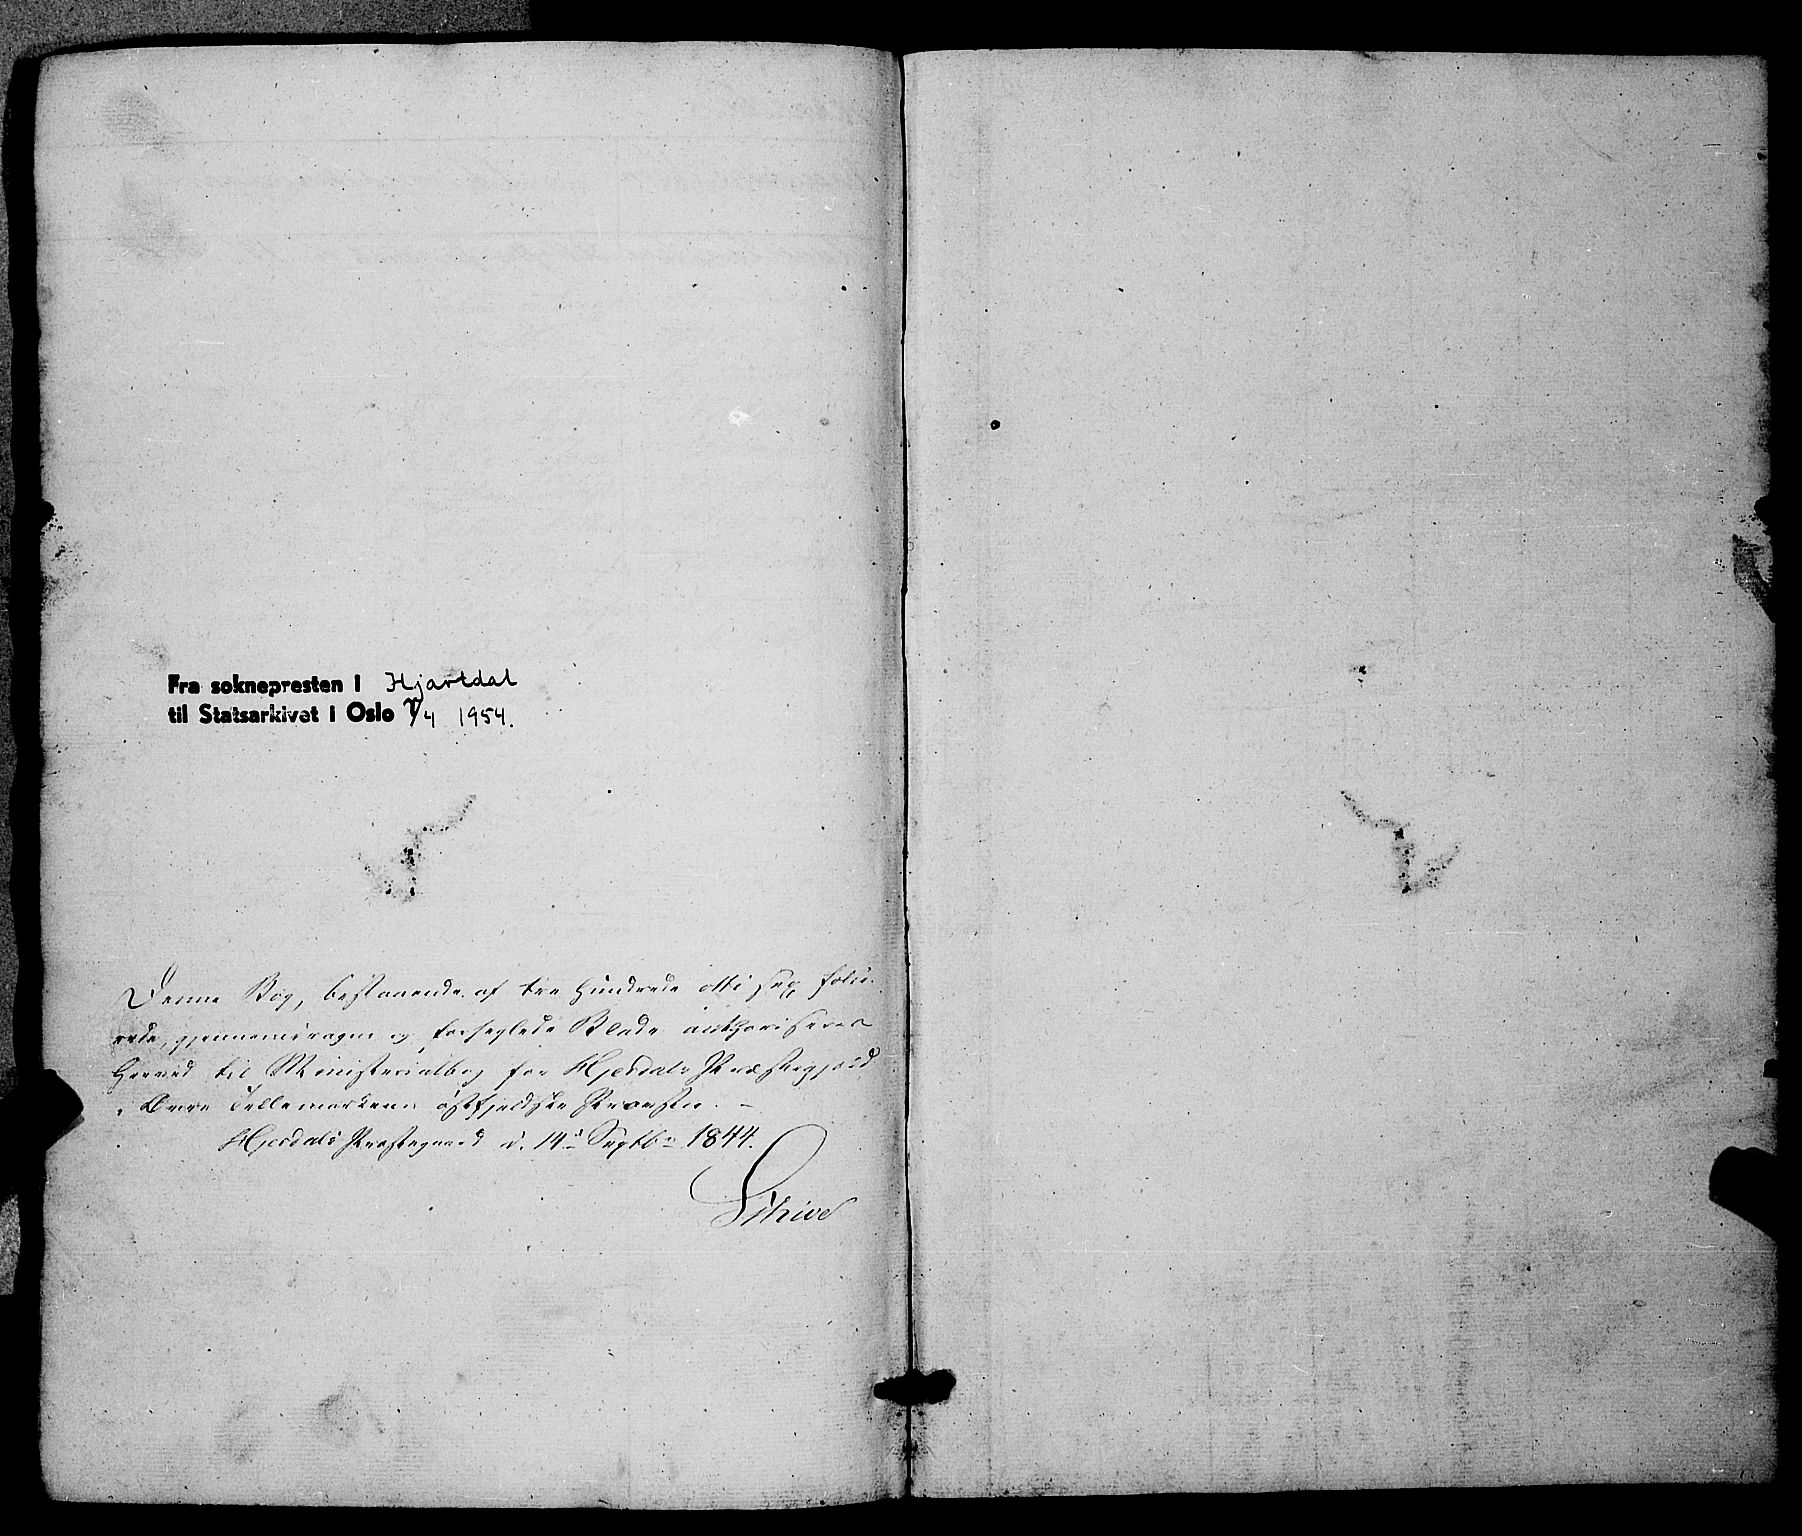 Fra soknepresten i Hjartdal
til Statsarkivet i Oslo 7/4 1954.
Denne Bog, bestaaende af tre Hundrede otti sex folie-
rede, gjennemdragne og forseglede Blade authoriseres
herved til Ministerialbog for Hjerdals Præstegjæld
i Øvre Tellemarkens østfjeldske Provstie. –
Hjerdals Præstegaard d. 14d Septbr 1844.
Schive